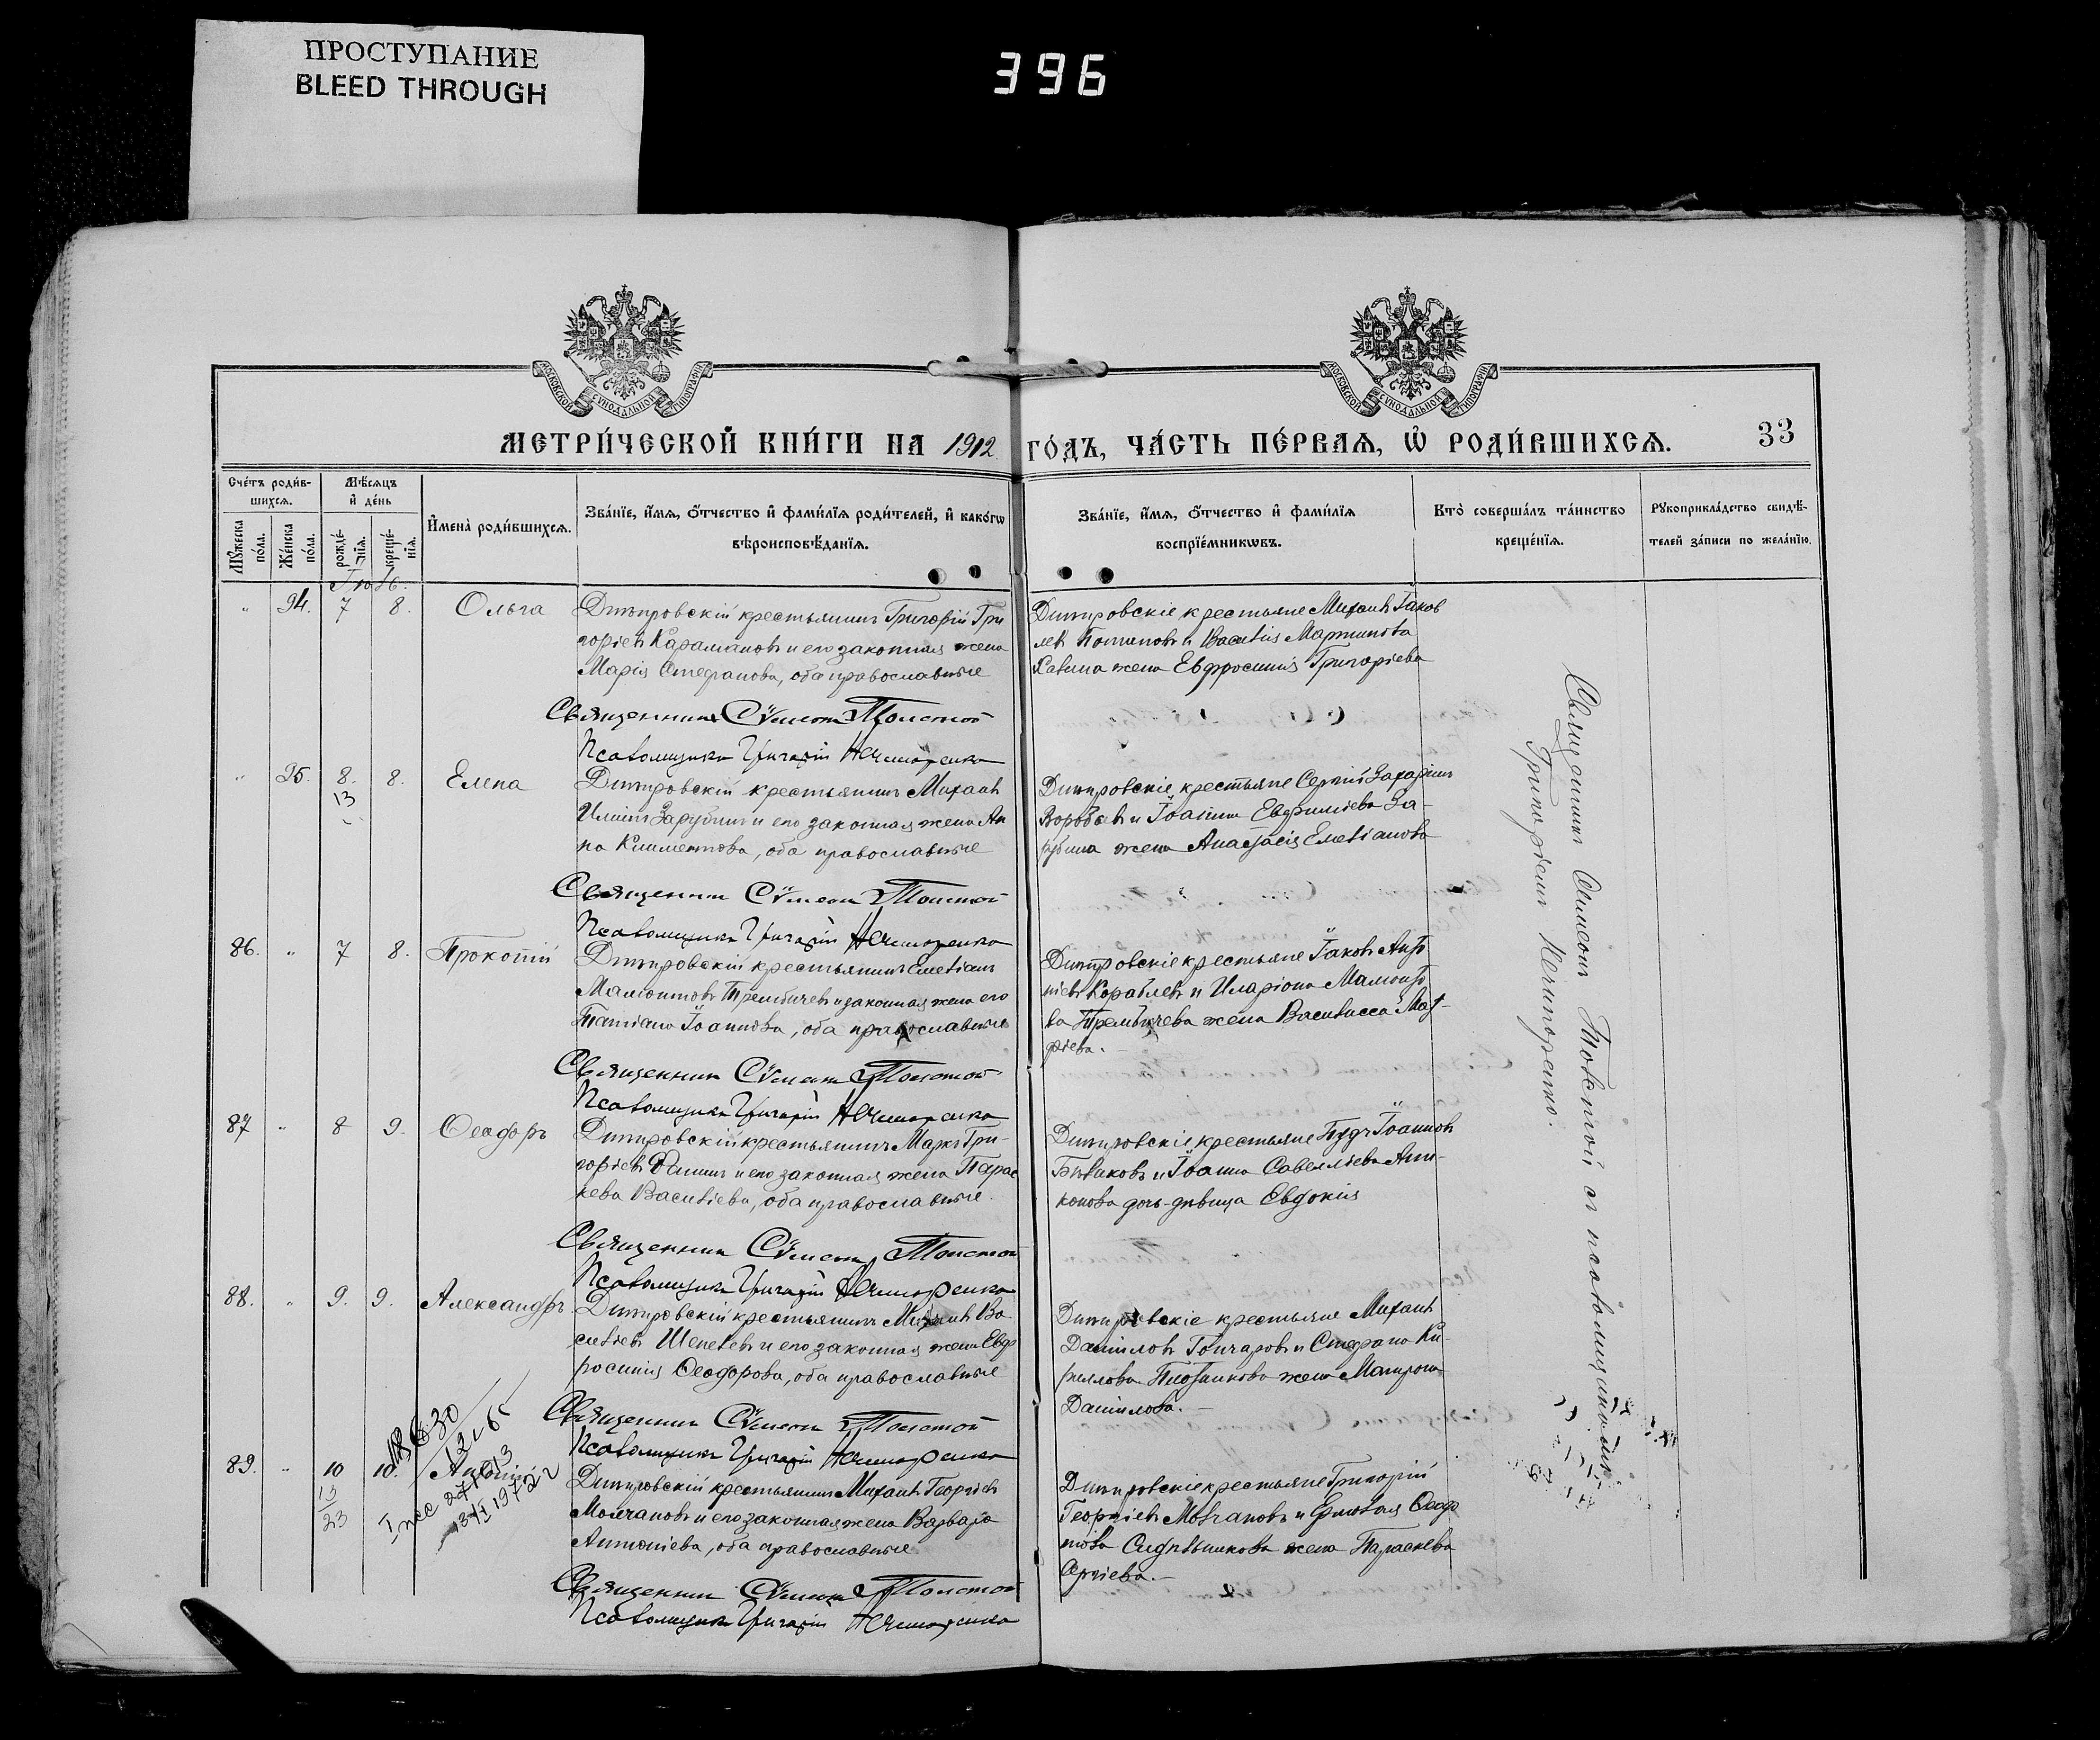 ПРОСТУПАНИЕ
BLEED THROUGH
396
МОСКОВСКОЙ СУНОДАЛЬНОЙ ТИПОГРАФІИ
МОСКОВСКОЙ СУНОДАЛЬНОЙ ТИПОГРАФІИ
МЕТРИ́ЧЕСКОЙ КНИ́ГИ НА 1912 ГО́ДЪ, ЧА́СТЬ ПЕ́РВАЯ, Ѡ РОДИ́ВШИХСЯ.
33
Сче́тъ роди́вшихся.
Мѣ́сяцъ и де́нь
Мꙋжеска по́ла.
Же́нска по́ла.
рожде́нїя.
креще́нїя.
Имена̀ роди́вшихся.
Зва́нїе, и́мя, о́тчество и фами́лїя роди́телей, и како́гѡ вѣроисповѣ́данїя.
Зва́нїе, и́мя, о́тчество и фами́лїя воспрїе́мникѡвъ.
Кто̀ соверша́лъ та́инство креще́нїя.
Рꙋкоприкла́дство свидѣ́телей за́писи по жела́нїю.
Іюль.
" 94. 7 8. Ольга
Дмитровскій крестьянинъ Григорій Гри
горіевъ Карамановъ и его законная жена
Марія Стефанова, оба православные
Дмитровскіе крестьяне Михаилъ Іаков
левъ Потаповъ и Василія Мартинова
жена Евфросинія Григоріева
Священникъ Сѵмеонъ Толстой
Псаломщикъ Григорій Нечипоренко
" 95. 8. 8. Елена
13
Дмитровскій крестьянинъ Михаилъ
Иліинъ Зарубинъ и его законная жена Ан
на Климентова, оба православные
Дмитровскіе крестьяне Сергій Захаріинъ
Воробьевъ и Іоанна Евфиміева За-
рубина жена Анастасія Емеліанова
Священникъ Сѵмеонъ Толстой
Псаломщикъ Григорій Нечипоренко
86. " 7 8. Прокопій
Дмитровскій крестьянинъ Емеліанъ
Мамонтовъ Трембичевъ и законная жена его
Татіана Іоаннова, оба православные
Дмитровскіе крестьяне Іаковъ Анто
ніевъ Кораблевъ и Иларіона Мамонто
ва Трембичева жена Василисса
фіева.
Священникъ Сѵмеонъ Толстой
Псаломщикъ Григорій Нечипоренко
87 " 8 9. Ѳеодоръ
Дмитровскій крестьянинъ Маркъ Гри-
горіевъ и его законная жена Парас
кева Василіева, оба православные.
Дмитровскіе крестьяне Іоанновъ
и Іоанна Савелліева Ани-
конова дочь-дѣвица Евдокія
Священникъ Сѵмеонъ Толстой
Псаломщикъ Григорій Нечипоренко
88. " 9. 9. Александръ
Дмитровскій крестьянинъ Михаилъ Ва
силіевъ Шепелевъ и его законная жена Евф
росинія Ѳеодорова, оба православные
Дмитровскіе крестьяне Михаилъ
Даніиловъ Гончаровъ и Стефана Ки-
риллова Плотникова жена Матрона
Даніилова.
Священникъ Сѵмеонъ Толстой
Псаломщикъ Григорій Нечипоренко
89. " 10 10. Антоній
13
23
Дмитровскій крестьянинъ Михаилъ Георгіевъ
Молчановъ и его законная жена Варвара
Антоніева, оба православные
Дмитровскіе крестьяне Григорій
Георгіевъ Молчановъ и Ѳеодо
това Сидѣльникова жена Параскева
Сергіева.
Священникъ Сѵмеонъ Толстой
Псаломщикъ Григорій Нечипоренко
Священникъ Симеонъ Толстой съ псаломщикомъ
Григоріемъ Нечипоренко.